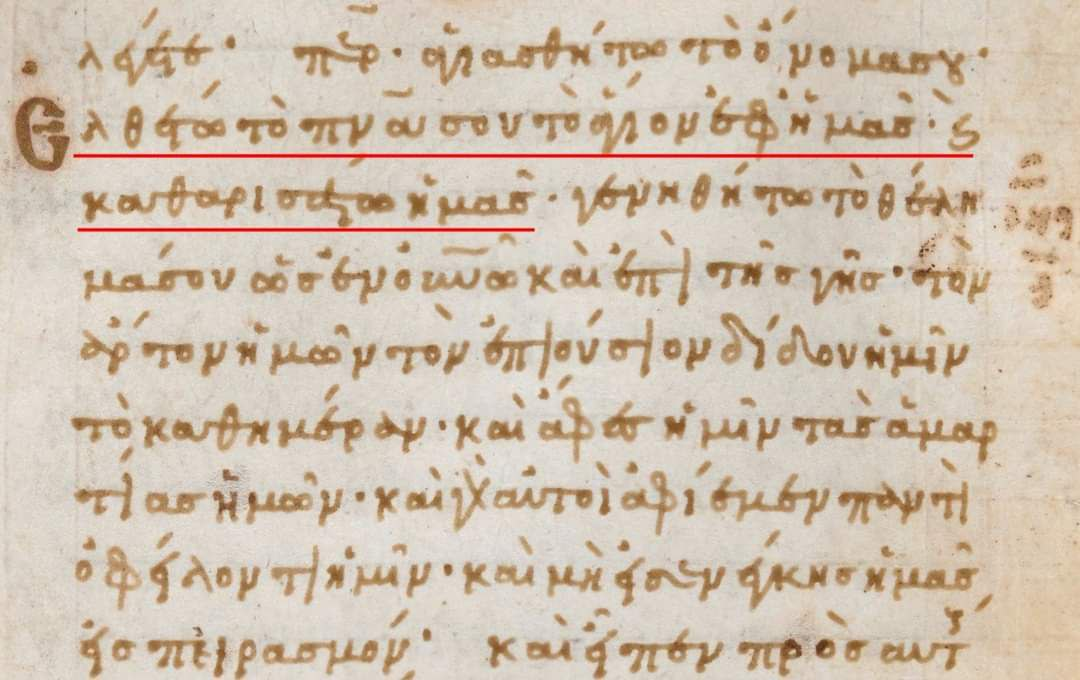 λέγετε· πε̅ρ· ἁγιασθήτω τὸ ὄνομά σου·
Ἐλθέτω τὸ πν̅α σου τὸ ἅγιον ἐφ ἡμᾶς· ϗ
καθαρισάτω ἡμᾶς· γενηθήτω τὸ θέλη
μά σου ὡς ἐν οὐν̅ω καὶ ἐπὶ τῆς γῆς· τὸν
ἄρτον ἡμῶν τὸν ἐπιούσιον δίδου ἡμῖν
τὸ καθημέραν· καὶ ἄφες ἡμῖν τὰς ἁμαρ
τίας ἡμῶν· καὶ γὰρ αὐτοὶ ἀφίεμεν παντὶ
ὀφείλοντι ἡμῖν· καὶ μὴ εἰσενείκης ἡμᾶς
εἰς πειρασμόν· καὶ εἶπεν πρὸς αὐτ